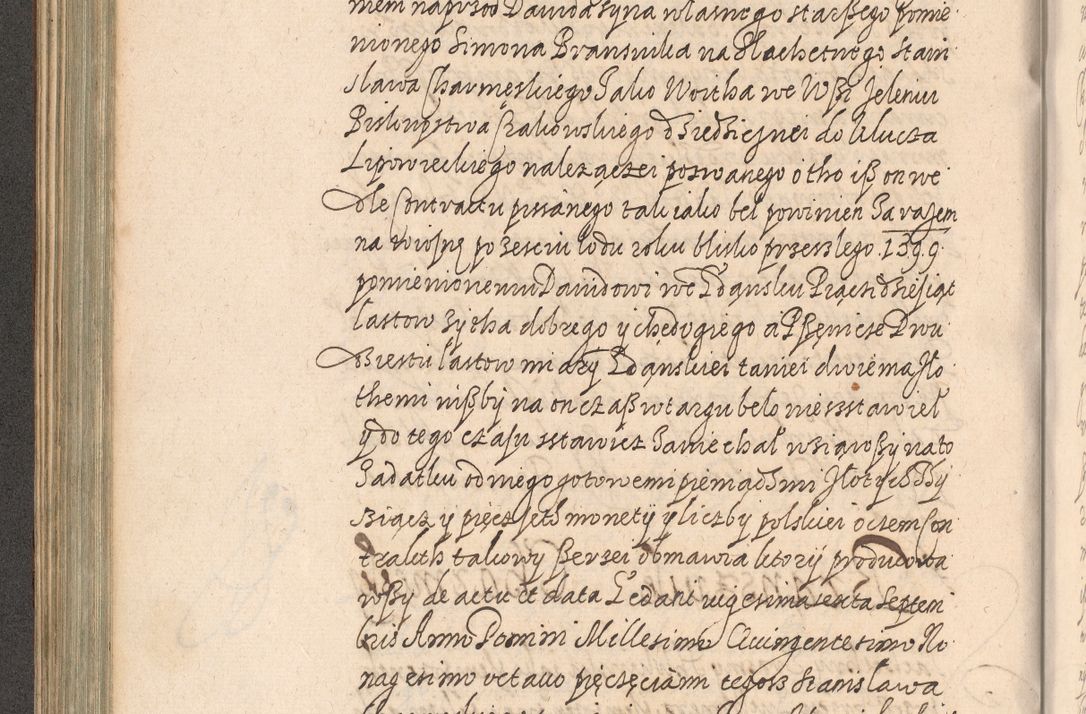 niem naprzod Dawida syna własnego starszego pomie
nionego Simona Bransnika na Slachetnego Stani
sława Charmęskiego Jako Woitha we Wsi Jeleniu
Biskupstwa Crakowskiego dziedzicznei do klucza
Lipowieckiego nalezączei pozwanego o tho iß on we
dle Contractu pisanego tak iako bel powinien Zarazem
na wiosnę po zesciu lodu roku blisko przeszlego 1599
pomienionemu Dawidowi we Gdąnsku Piączdziesiąt
lastow zytha dobrego y chędogiego a Psęnicze Dwu
dziestu lastow miary Gdąnskiei taniei dwiema zło
themi nißby na on czaß w targu belo nie zstawieł
y do tego czasu zstawicz Zaniechał wziąwszy na to
Zadatku od niego gotowemi pieniądzmi złotych Dwy
ziącz y pięcz seth monety y liczby polskiei o czem Con
trakth takowy ßerzei obmawia ktory producowa
wßy de actu et data Gedani vigesima sexta Septem
bris Anno Domini Millesimo Quingentesimo No
nagesimo octavo pięczęciami tegoß Stanislawa